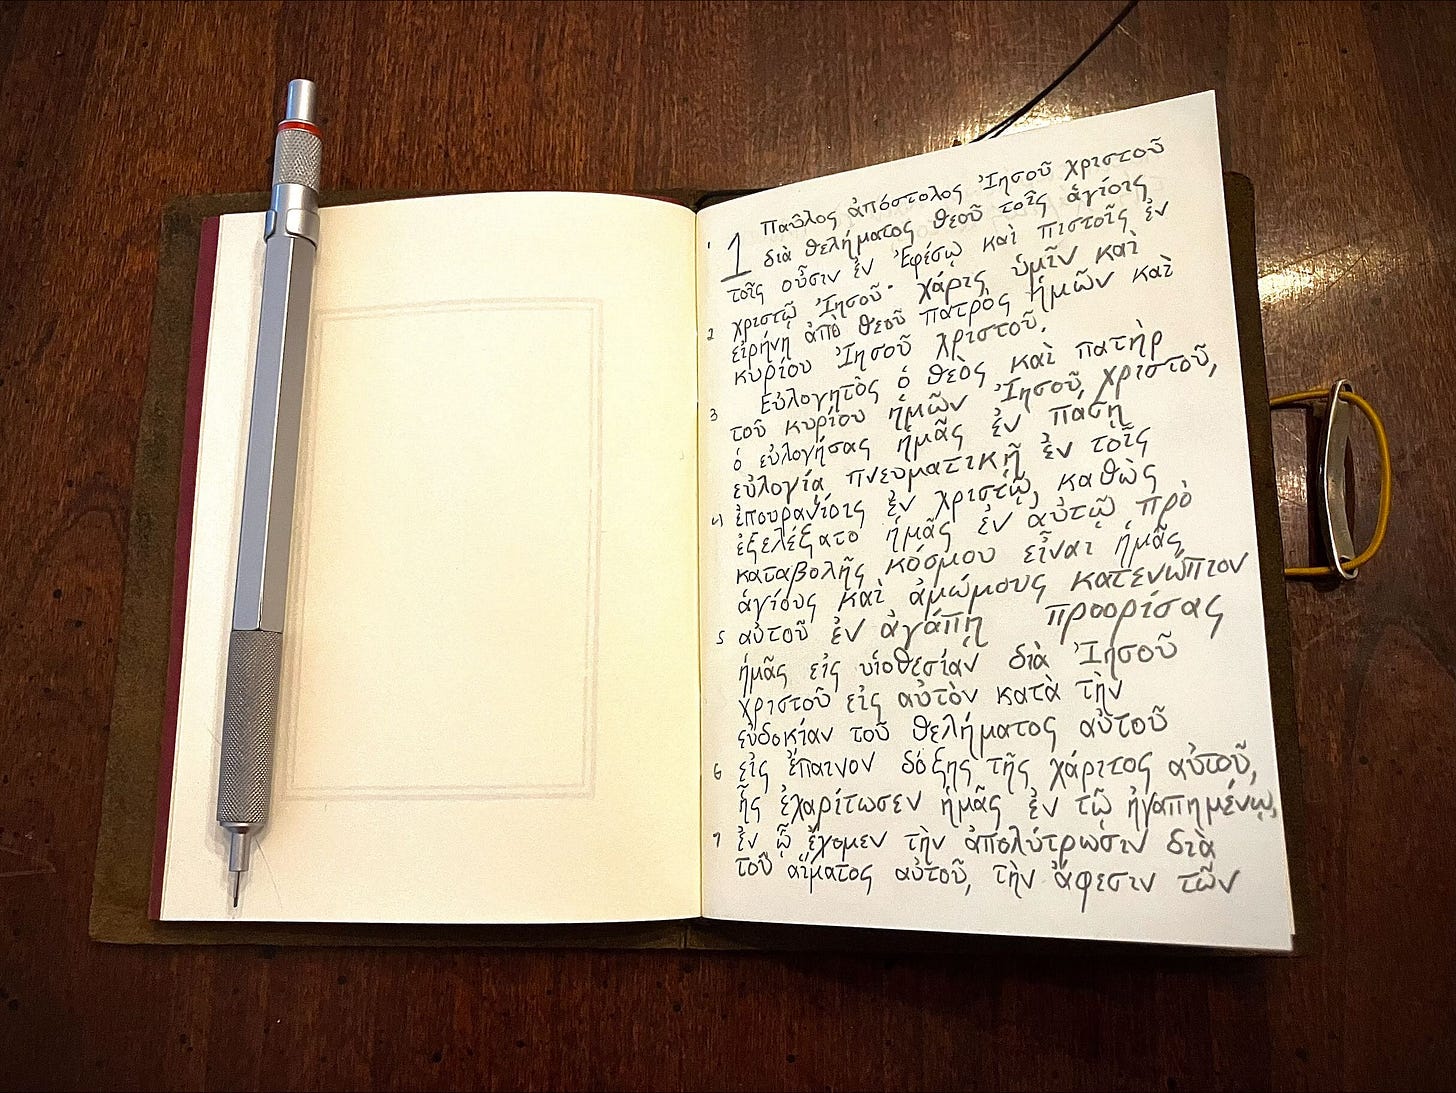 1 1 Παῦλος ἀπόστολος Ἰησοῦ χριστοῦ
διὰ θελήματος θεοῦ τοῖς ἁγίοις
τοῖς οὖσιν ἐν Ἐφέσῳ καὶ πιστοῖς ἐν
χριστῷ Ἰησοῦ· χάρις ὑμῖν καὶ
2 εἰρήνη ἀπὸ θεοῦ πατρὸς ἡμῶν καὶ
κυρίου Ἰησοῦ χριστοῦ.
Εὐλογητὸς ὁ θεὸς καὶ πατὴρ
3 τοῦ κυρίου ἡμῶν Ἰησοῦ χριστοῦ,
ὁ εὐλογήσας ἡμᾶς ἐν πάσῃ
εὐλογίᾳ πνευματικῇ ἐν τοῖς
ἐπουρανίοις ἐν χριστῷ, καθὼς
4 ἐξελέξατο ἡμᾶς ἐν αὐτῷ πρὸ
καταβολῆς κόσμου εἶναι ἡμᾶς
ἁγίους καὶ ἀμώμους κατενώπιον
5 αὐτοῦ ἐν ἀγάπῃ προορίσας
ἡμᾶς εἰς υἱοθεσίαν διὰ Ἰησοῦ
χριστοῦ εἰς αὐτὸν κατὰ τὴν
εὐδοκίαν τοῦ θελήματος αὐτοῦ
6 εἰς ἔπαινον δόξης τῆς χάριτος αὐτοῦ,
ἧς ἐχαρίτωσεν ἡμᾶς ἐν τῷ ἠγαπημένῳ,
7 ἐν ᾧ ἔχομεν τὴν ἀπολύτρωσιν διὰ
τοῦ αἵματος αὐτοῦ, τὴν ἄφεσιν τῶν